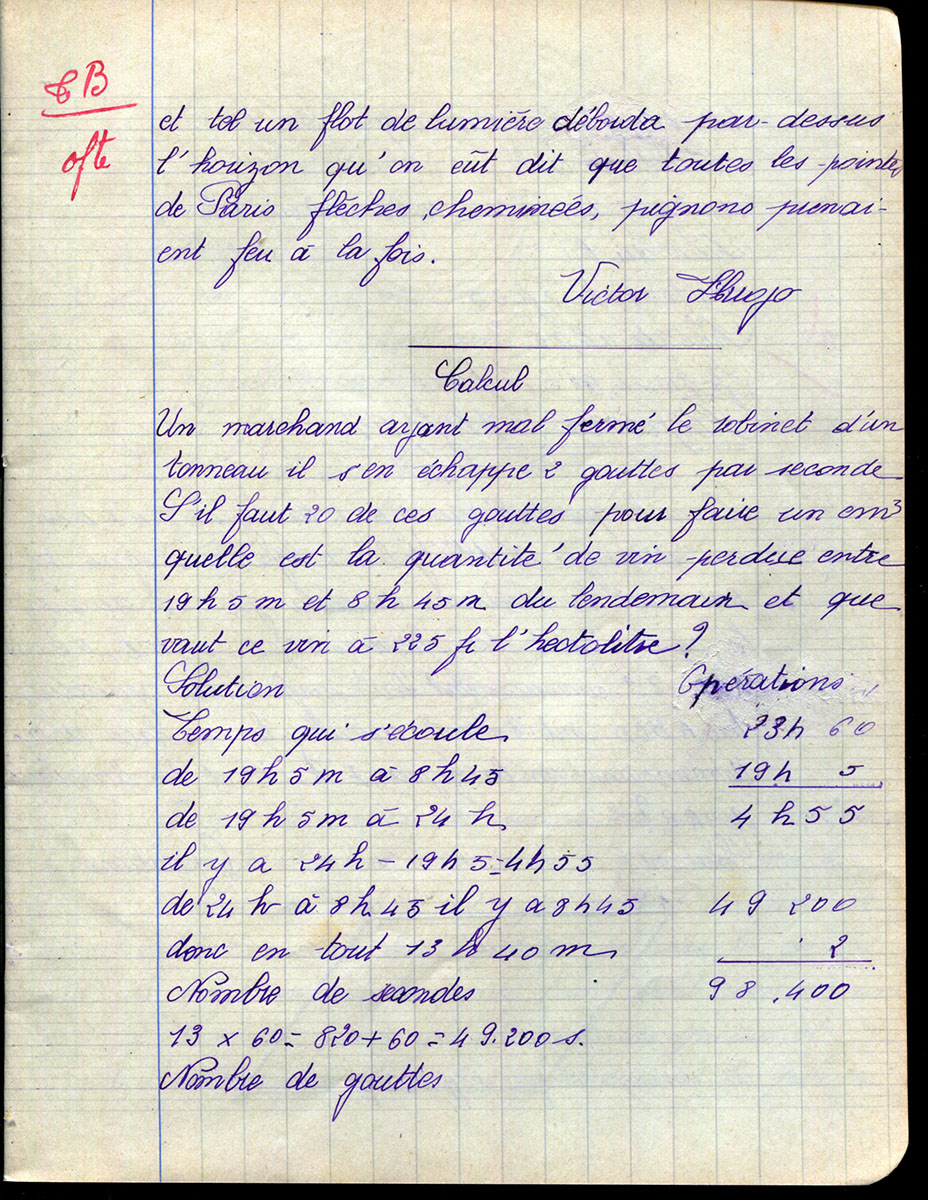 TB
ofte
et tel un flot de lumière déborda par-dessus
l'horizon qu'on eût dit que toutes les pointes
de Paris flèches, cheminées, pignons prenai-
ent feu à la fois.
Victor Hugo
Calcul
Un marchand ayant mal fermé le robinet d'un
tonneau il s'en échappe 2 gouttes par seconde
S'il faut 20 de ces gouttes pour faire un cm³
quelle est la quantité de vin perdue entre
19h 5m et 8h 45m du lendemain et que
vaut ce vin à 225 f l'hectolitre?
Solution Opérations
Temps qui s'écoule 23h 60
de 19h 5m à 8h 45 19h 5
de 19h 5m à 24h 4h 55
il y a 24h - 19h 5 = 4h 55
de 24h à 8h.45 il y a 8h45 49 200
donc en tout 13h 40m 2
Nombre de secondes 98.400
13 x 60 = 820 + 60 = 49.200 s.
Nombre de gouttes